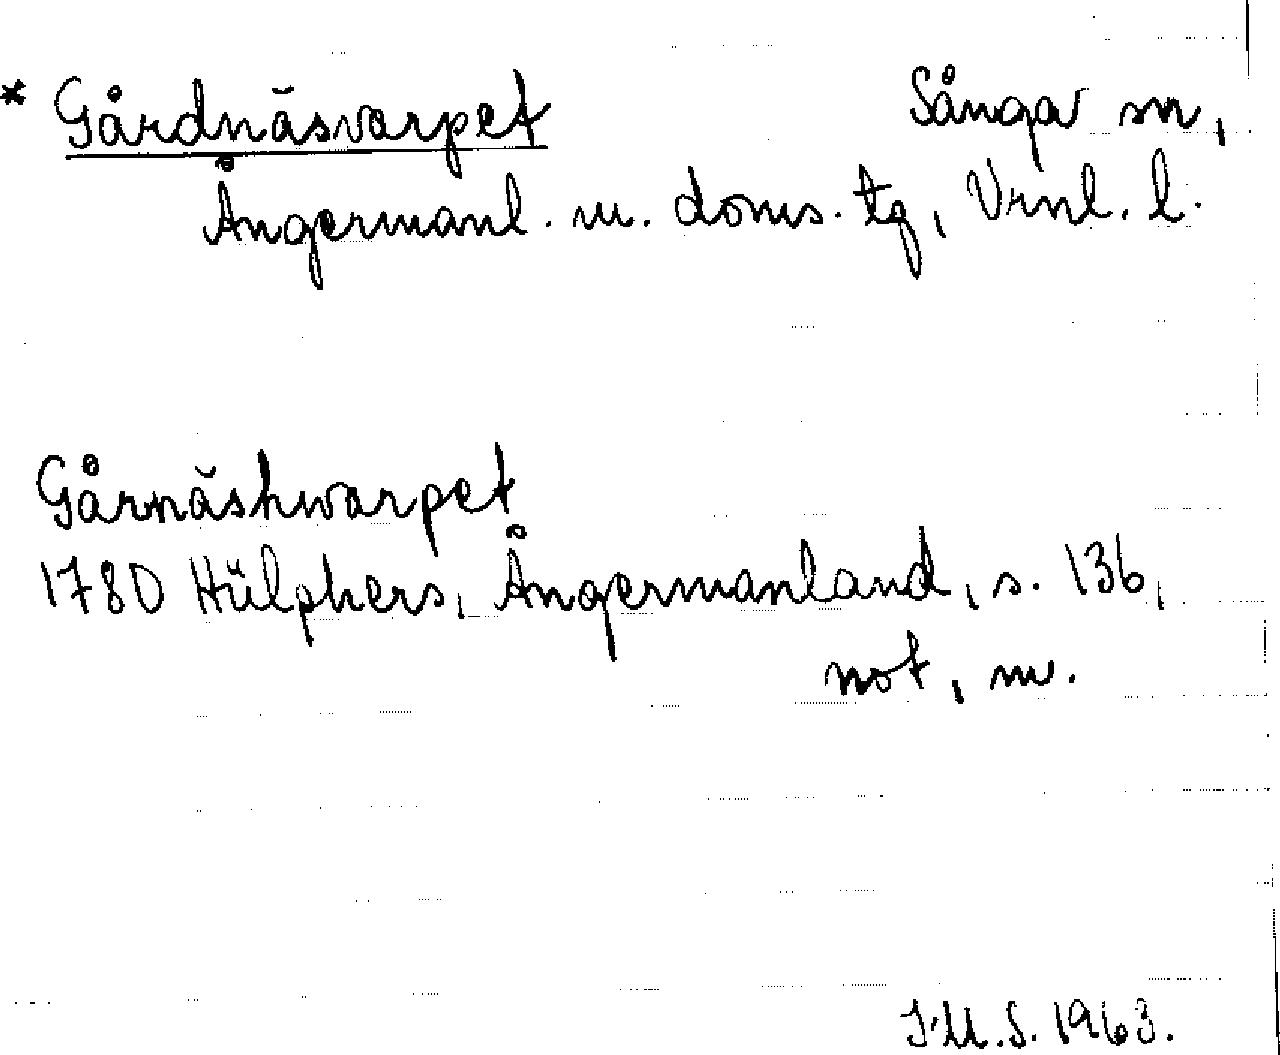 * Gårdnäsvarpet Sånga sn,
Ångermanl. m. doms. tg, Vrnl. l.
Gårnäshwarpet
1780 Hülphers, Ångermanland, s. 136,
not, m.
I.M.S. 1963.